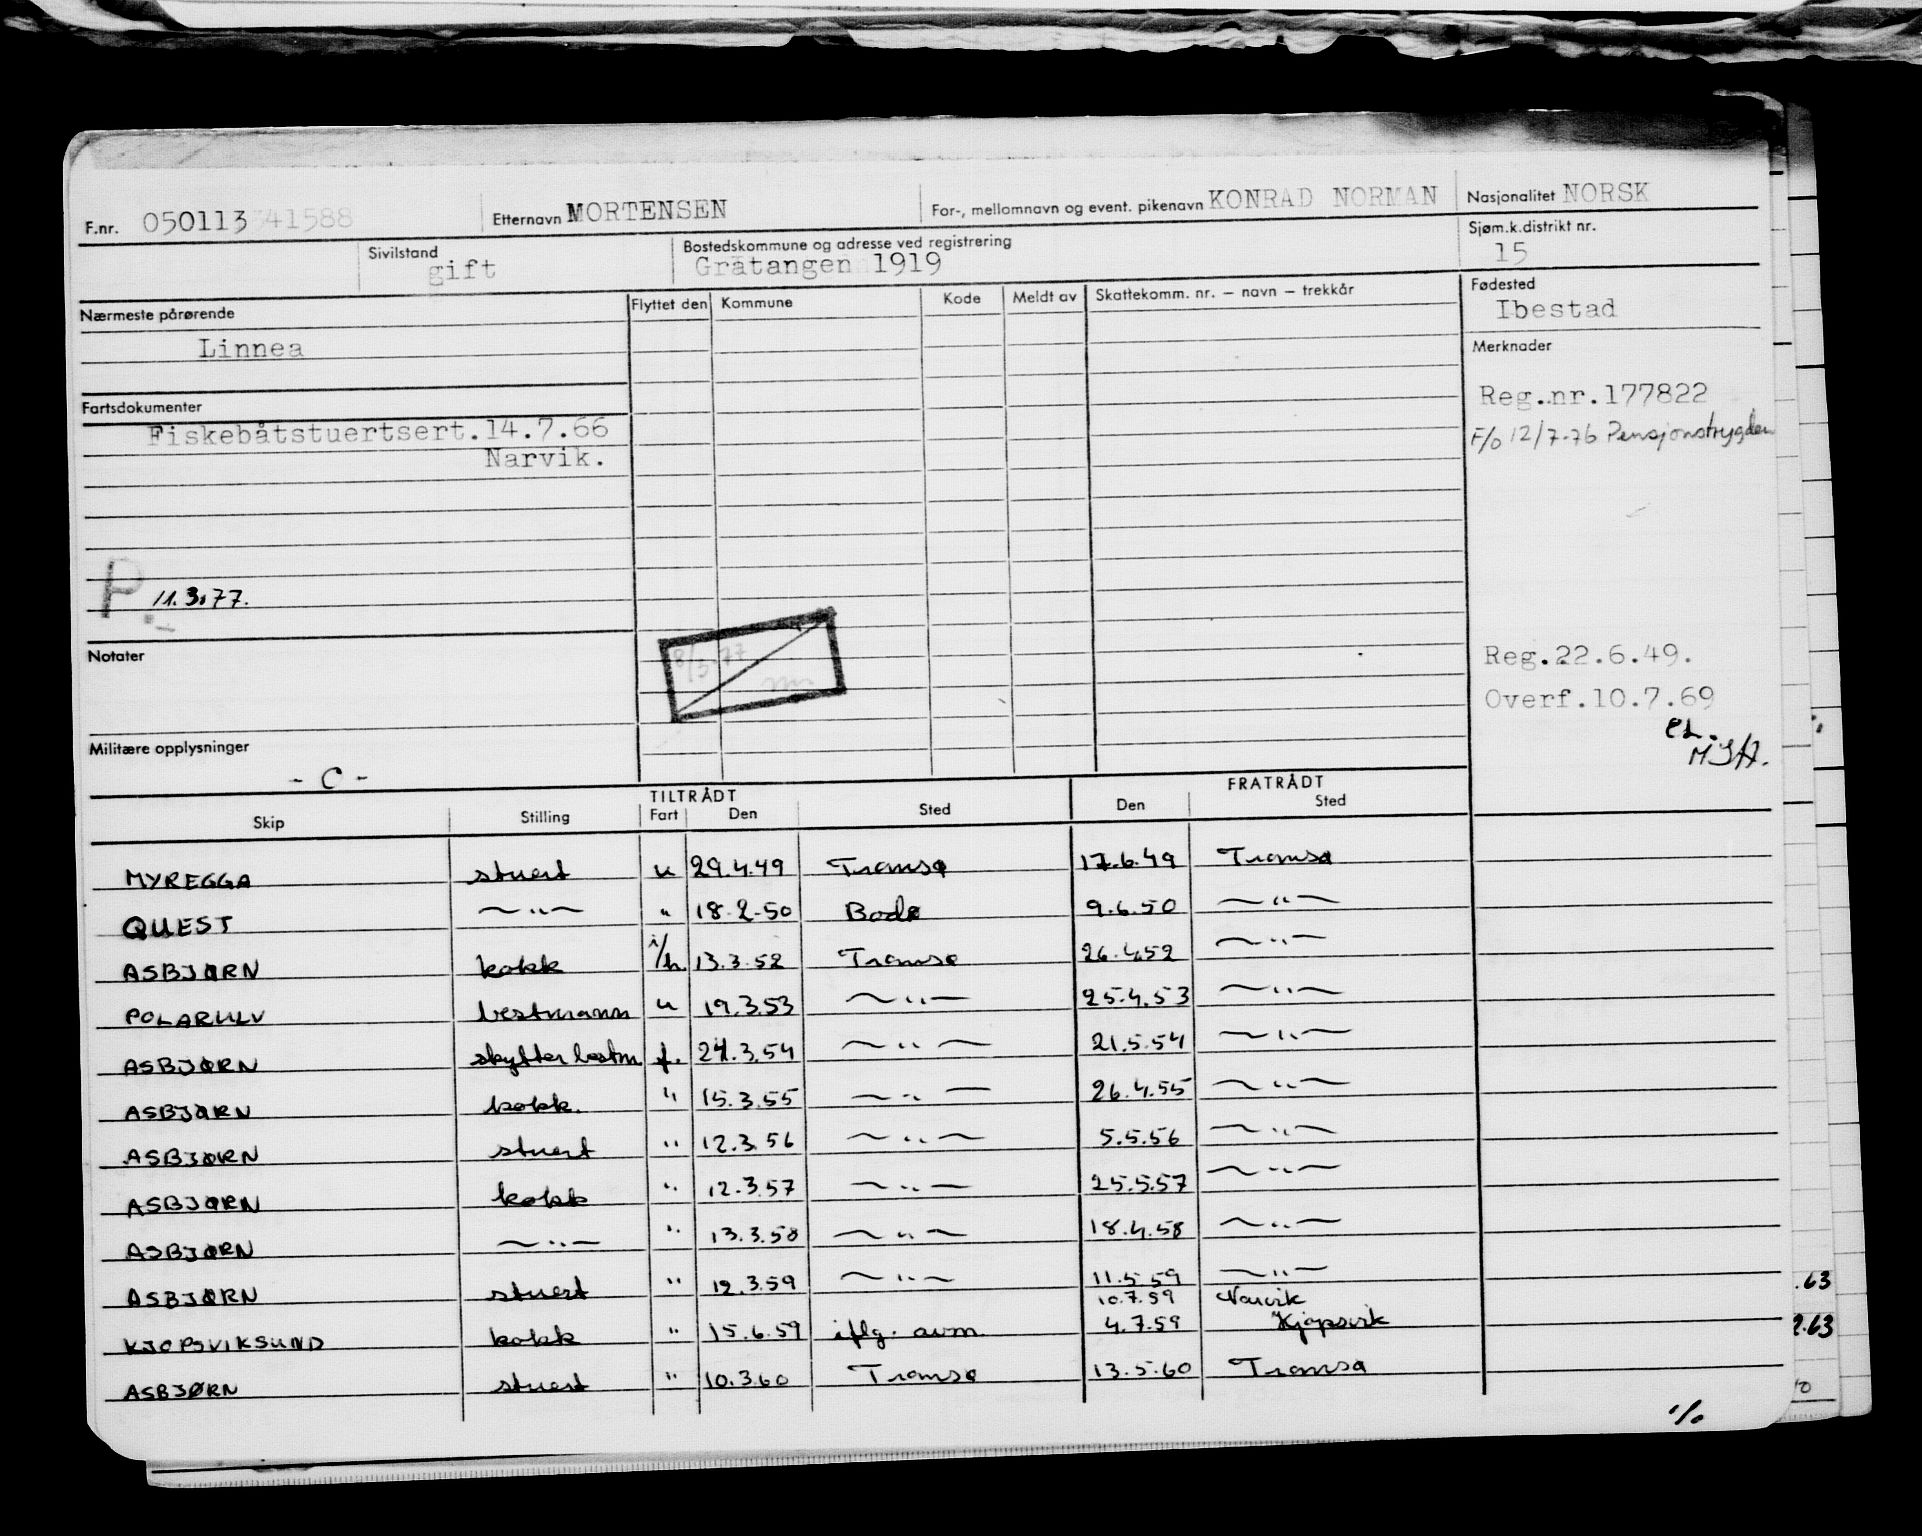 F.nr. 050113 41588 Etternavn MORTENSEN For-, mellomnavn og event. pikenavn KONRAD NORMAN Nasjonalitet NORSK
Sivilstand gift Bostedskommune og adresse ved registrering Gratangen 1919 Sjøm.k.distrikt nr. 15
Nærmeste pårørende Flyttet den Kommune Kode Meldt av Skattekomm. nr. – navn – trekkår Fødested Ibestad
Linnea
Merknader
Reg.nr.177822
F/o 12/7-76 Pensjonstrygden
Fartsdokumenter
Fiskebåtstuertsert.14.7.66
Narvik.
P 11.3.77.
8/3-77
Notater
Reg.22.6.49.
Overf.10.7.69
Militære opplysninger
- C -
TILTRÅDT FRATRÅDT
Skip Stilling Fart Den Sted Den Sted
MYREGGA stuert u 29.4.49 Tromsø 17.6.49 Tromsø
QUEST —"— " 18.2-50 Bodø 9.6.50 —"—
ASBJØRN kokk i/h. 13.3.52 Tromsø 26.4.52 —"—
POLARULV bestmann u 19.3.53 —"— 25.4.53 —"—
ASBJØRN skytter bestm f. 24.3.54 —"— 21.5.54 —"—
ASBJØRN kokk. " 15.3.55 —"— 26.4.55 —"—
ASBJØRN stuert " 12.3.56 —"— 5.5.56 —"—
ASBJØRN kokk " 12.3.57 —"— 25.5.57 —"—
ASBJØRN —"— " 13.3.58 —"— 18.4.58 —"—
ASBJØRN stuert " 12.3.59 —"— 11.5.59 —"—
10.7.59 Narvik
KJØPSVIKSUND kokk " 15.6.59 iflg. avm. 4.7.59 Kjøpsvik
ASBJØRN stuert " 10.3.60 Tromsø 13.5.60 Tromsø
.63
2.63